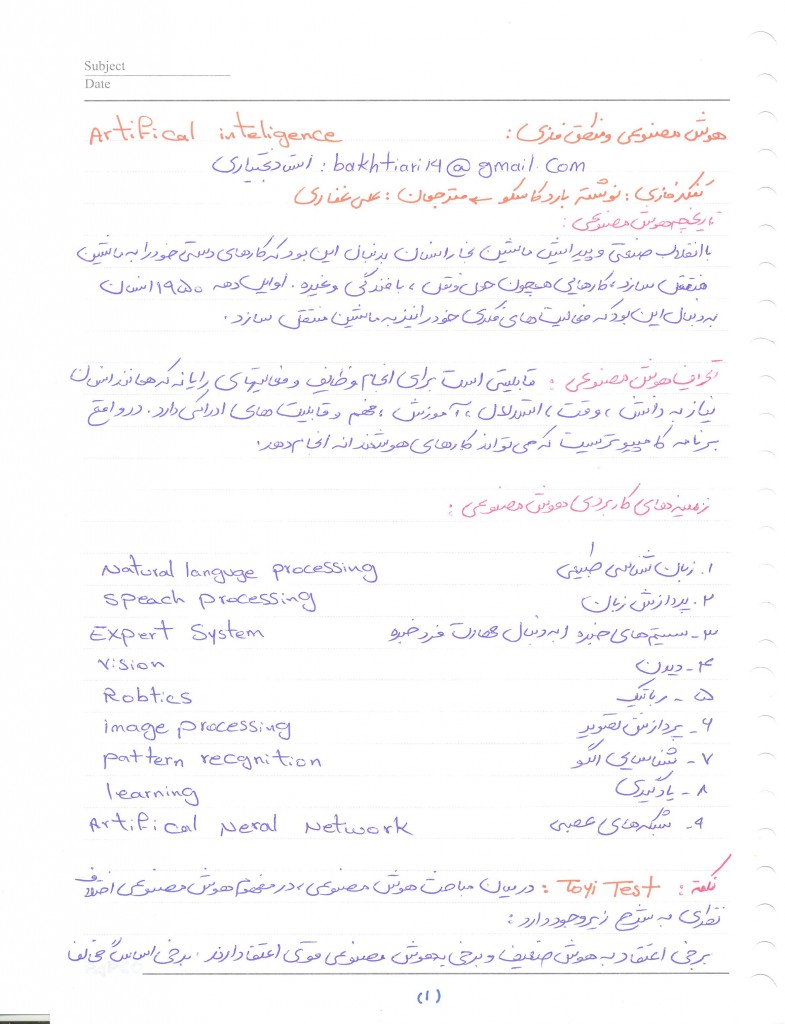 Subject
Date
هوش مصنوعی و منطق فازی : Artifical inteligence
استاد بختیاری : bakhtiari14@gmail.com
تفکر فازی : نوشته بارد کاسکو → مترجمان : علی غفاری
تاریخچه هوش مصنوعی :
با انقلاب صنعتی و پیدایش ماشین بخار انسان بدنبال این بود که کارهای دستی خود را به ماشین
منتقل سازد ، کارهایی همچون حمل و نقل ، بافندگی و غیره . اوایل دهه ۱۹۵۰ انسان
به دنبال این بود که فعالیت های فکری خود را نیز به ماشین منتقل سازد .
تعریف هوش مصنوعی : قابلیتی است برای انجام وظایف و فعالیتهای رایانه که همانند انسان
نیاز به دانش ، وقت ، استدلال ، آموزش ، فهم و قابلیت های ادراکی دارد . در واقع
برنامه کامپیوتریست که می تواند کارهای هوشمندانه انجام دهد .
زمینه های کاربردی هوش مصنوعی :
۱. زبان شناسی طبیعی Natural languge processing
۲. پردازش زبان Speach processing
۳- سیستم های خبره ( به دنبال مهارت فرد خبره Expert System
۴- دیدن vision
۵- رباتیک Robtics
۶- پردازش تصویر image processing
۷- شناسایی الگو pattern recgnition
۸- یادگیری learning
۹- شبکه های عصبی Artifical Neral Network
نکته : Toyi Test : در میان مباحث هوش مصنوعی ، در مفهوم هوش مصنوعی اختلاف
نظرای به شرح زیر وجود دارد :
برخی اعتقاد به هوش ضعیف و برخی به هوش مصنوعی قوی اعتقاد دارند . برخی اساساً مخالف
(۱)